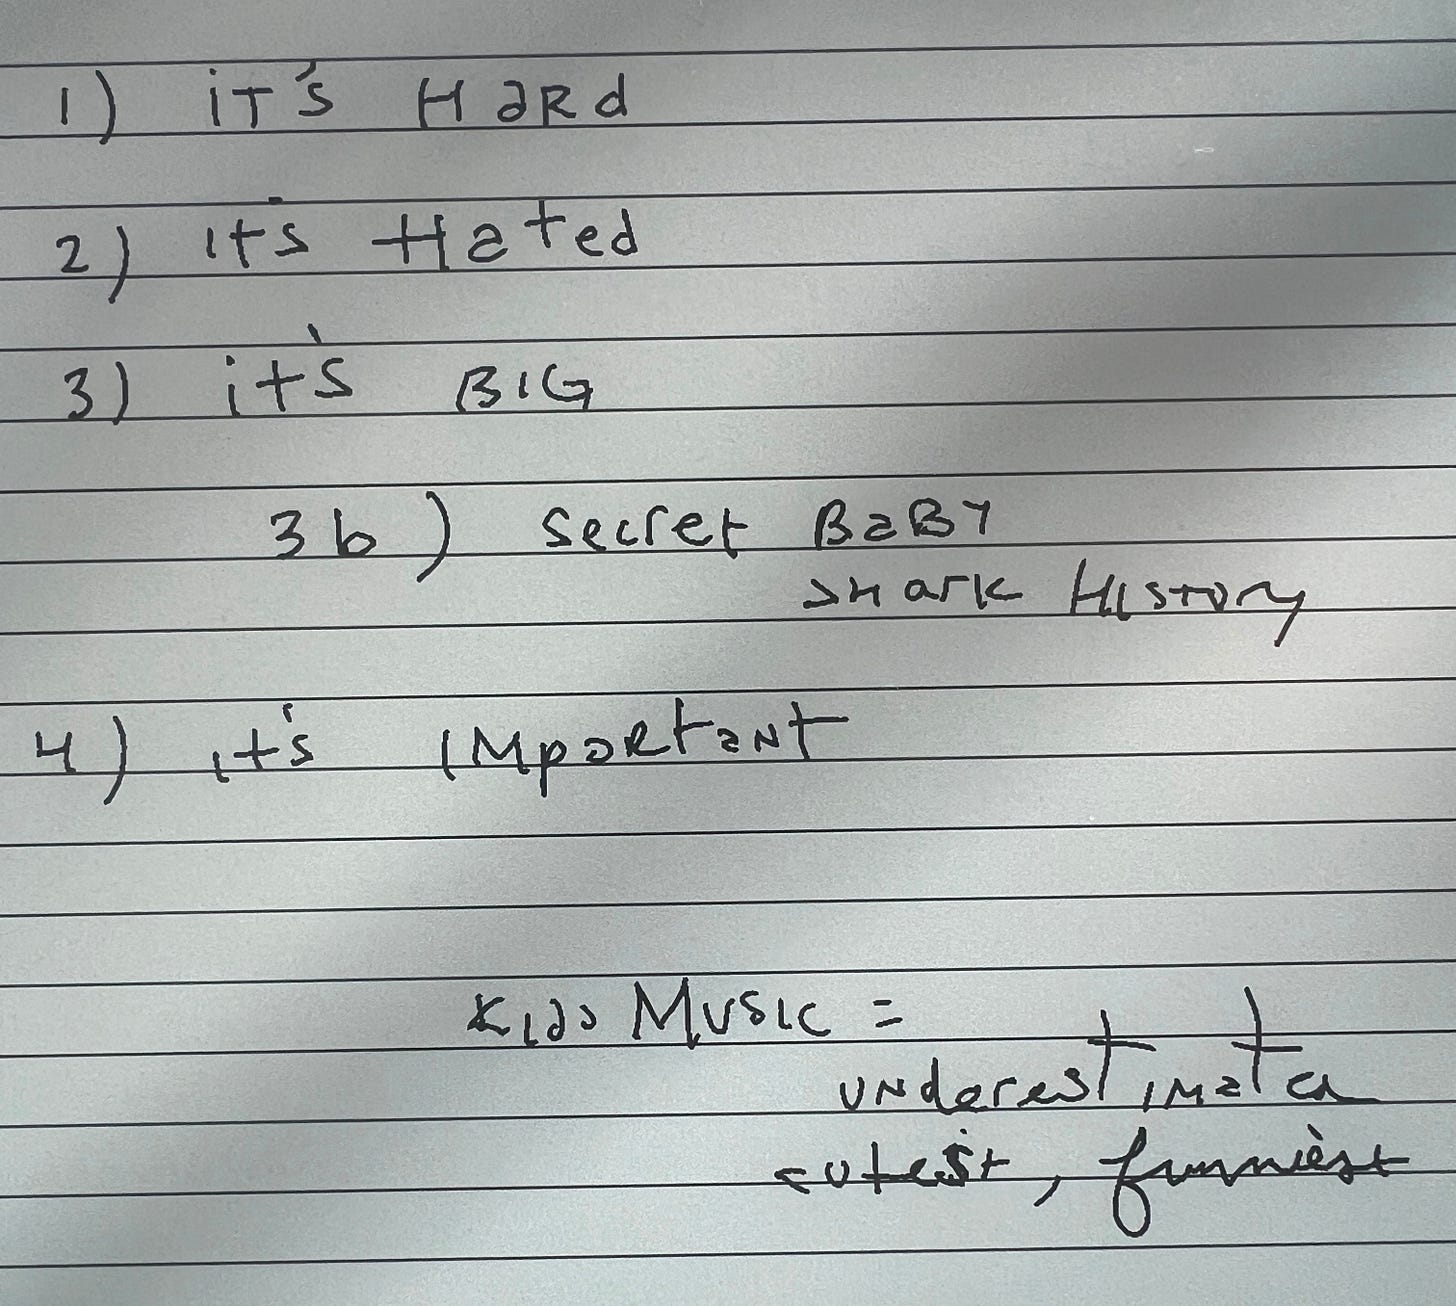 1) iT's HaRd
2) it's Hated
3) it's BIG
3b) secret BaBY
shark HIstory
4) it's IMpoRtaNt
Kids Music =
uNderestiMated
cutest, funniest